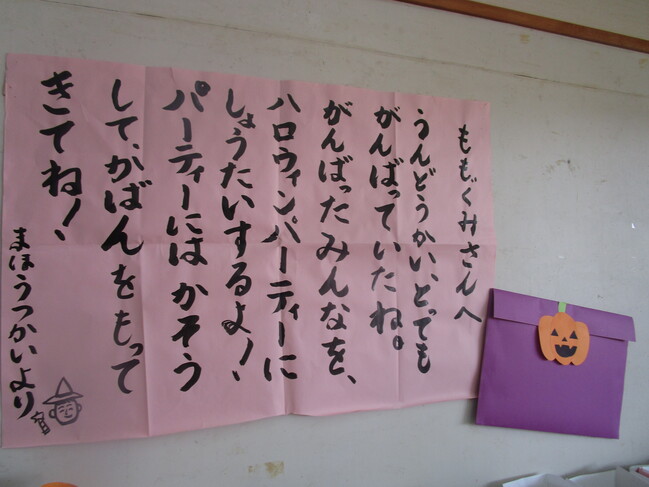 ももぐみさんへ
うんどうかい、とっても
がんばっていたね。
がんばったみんなを、
ハロウィンパーティーに
しょうたいするよ！
パーティーにはかそう
して、かばんをもって
きてね！
まほうつかいより